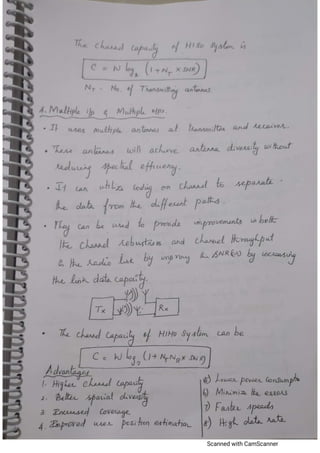 The Channel Capacity of MISO System is
C = W log₂ (1 + N_T × SNR)
N_T - No. of Transmitting antennas.
4. Multiple i/p & Multiple o/ps.
• It uses multiple antennas at transmitter and receiver.
• These antennas will achieve antenna diversity without
reducing spectral efficiency.
• It can utilize coding on channel to separate
the data from the different paths.
• They can be used to provide improvements in both
the channel robustness and channel throughput
& the radio link by improving the SNR(s) by increasing
the link data capacity.
Tx Rx
• The Channel Capacity of MIMO System can be
C = W log₂ (1 + N_T N_R × SNR)
Advantages
1. Higher Channel Capacity
2. Better spatial diversity
3. Increased Coverage
4. Improved user position estimation
5) Lower power Consumptn
6) Minimize the errors
7) Faster speeds
8) High data rate
Scanned with CamScanner